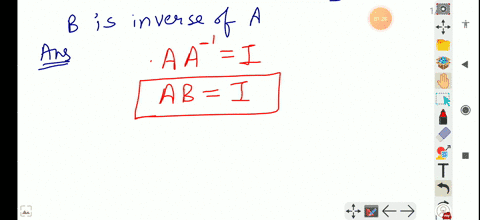 B is inverse of A
Ans
. A A⁻¹ = I
AB = I
T